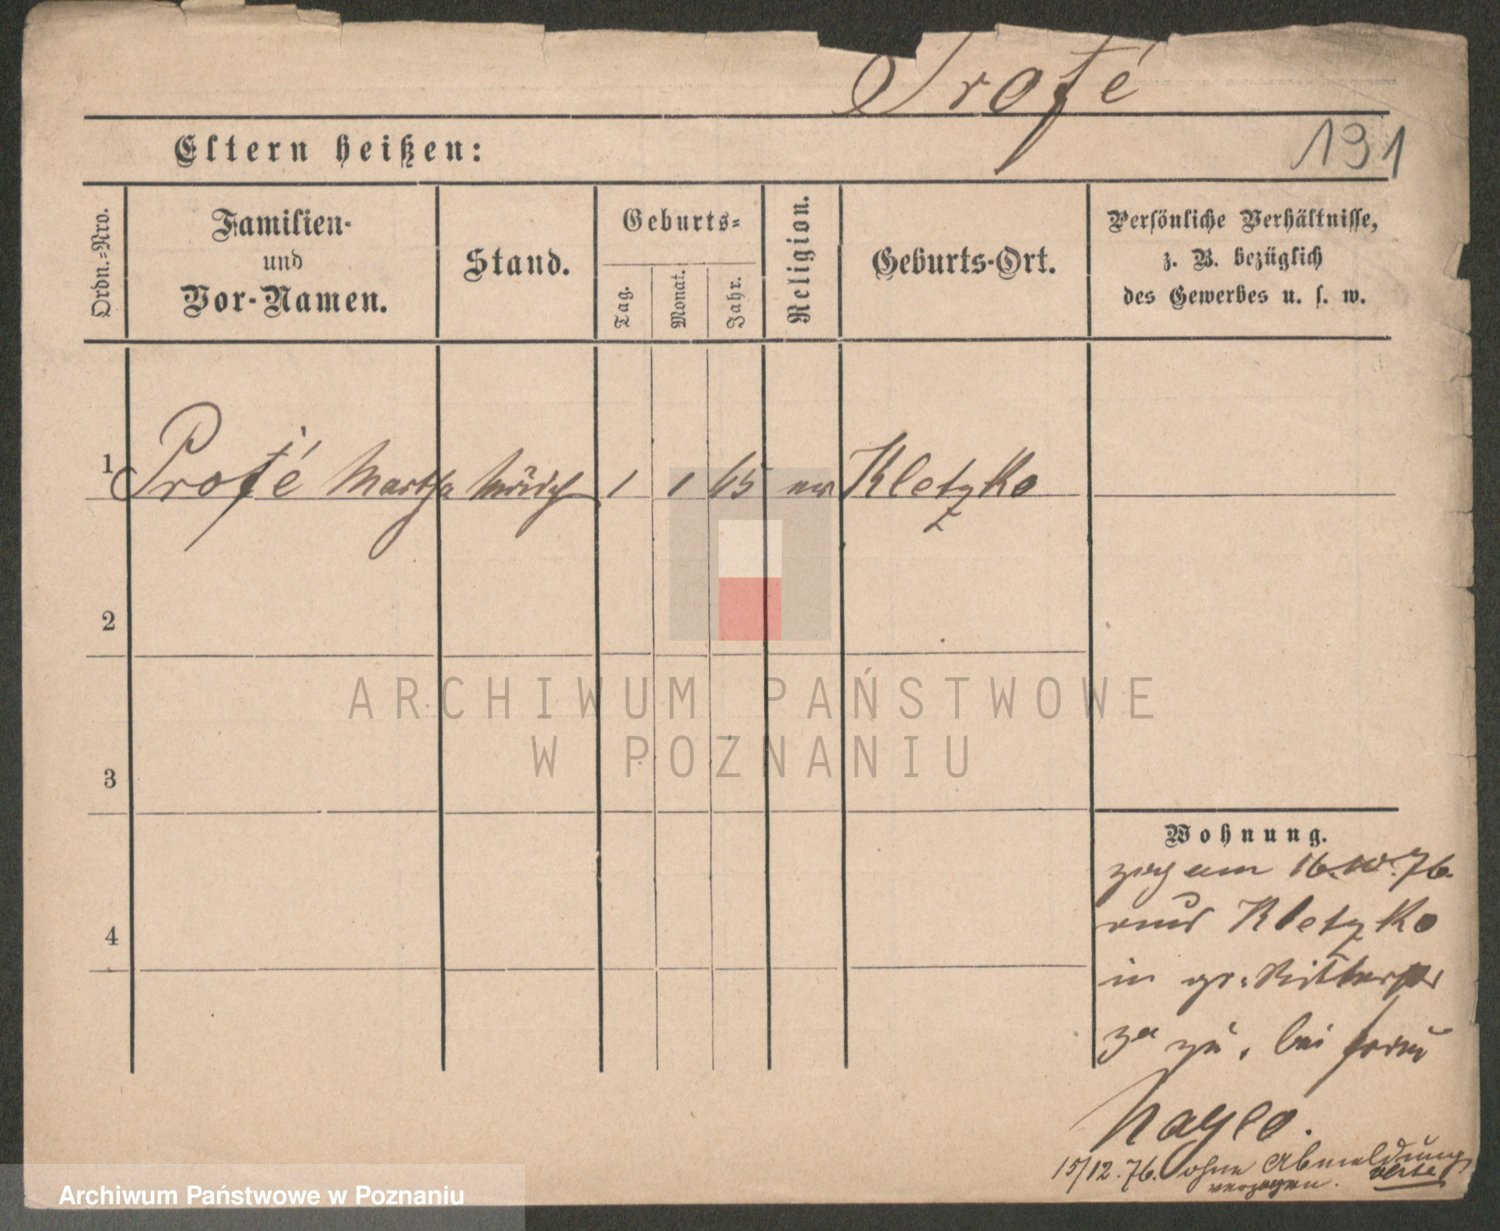 Profé
191
Eltern heißen:
Ordn.-Nro.
Familien-
und
Vor-Namen.
Stand.
Geburts-
Tag.
Monat.
Jahr.
Religion.
Geburts-Ort.
Persönliche Verhältnisse,
z. B. bezüglich
des Gewerbes u. s. w.
1 Profé Martha 1 1 65 Kletzko
2
ARCHIWUM PAŃSTWOWE
W POZNANIU
3
Wohnung.
zog am 16.10.76.
aus Kletzko
4
in gr. Ritterstr
zu, bei
15/12.76. ohne Abmeldung
verzogen.
Archiwum Państwowe w Poznaniu